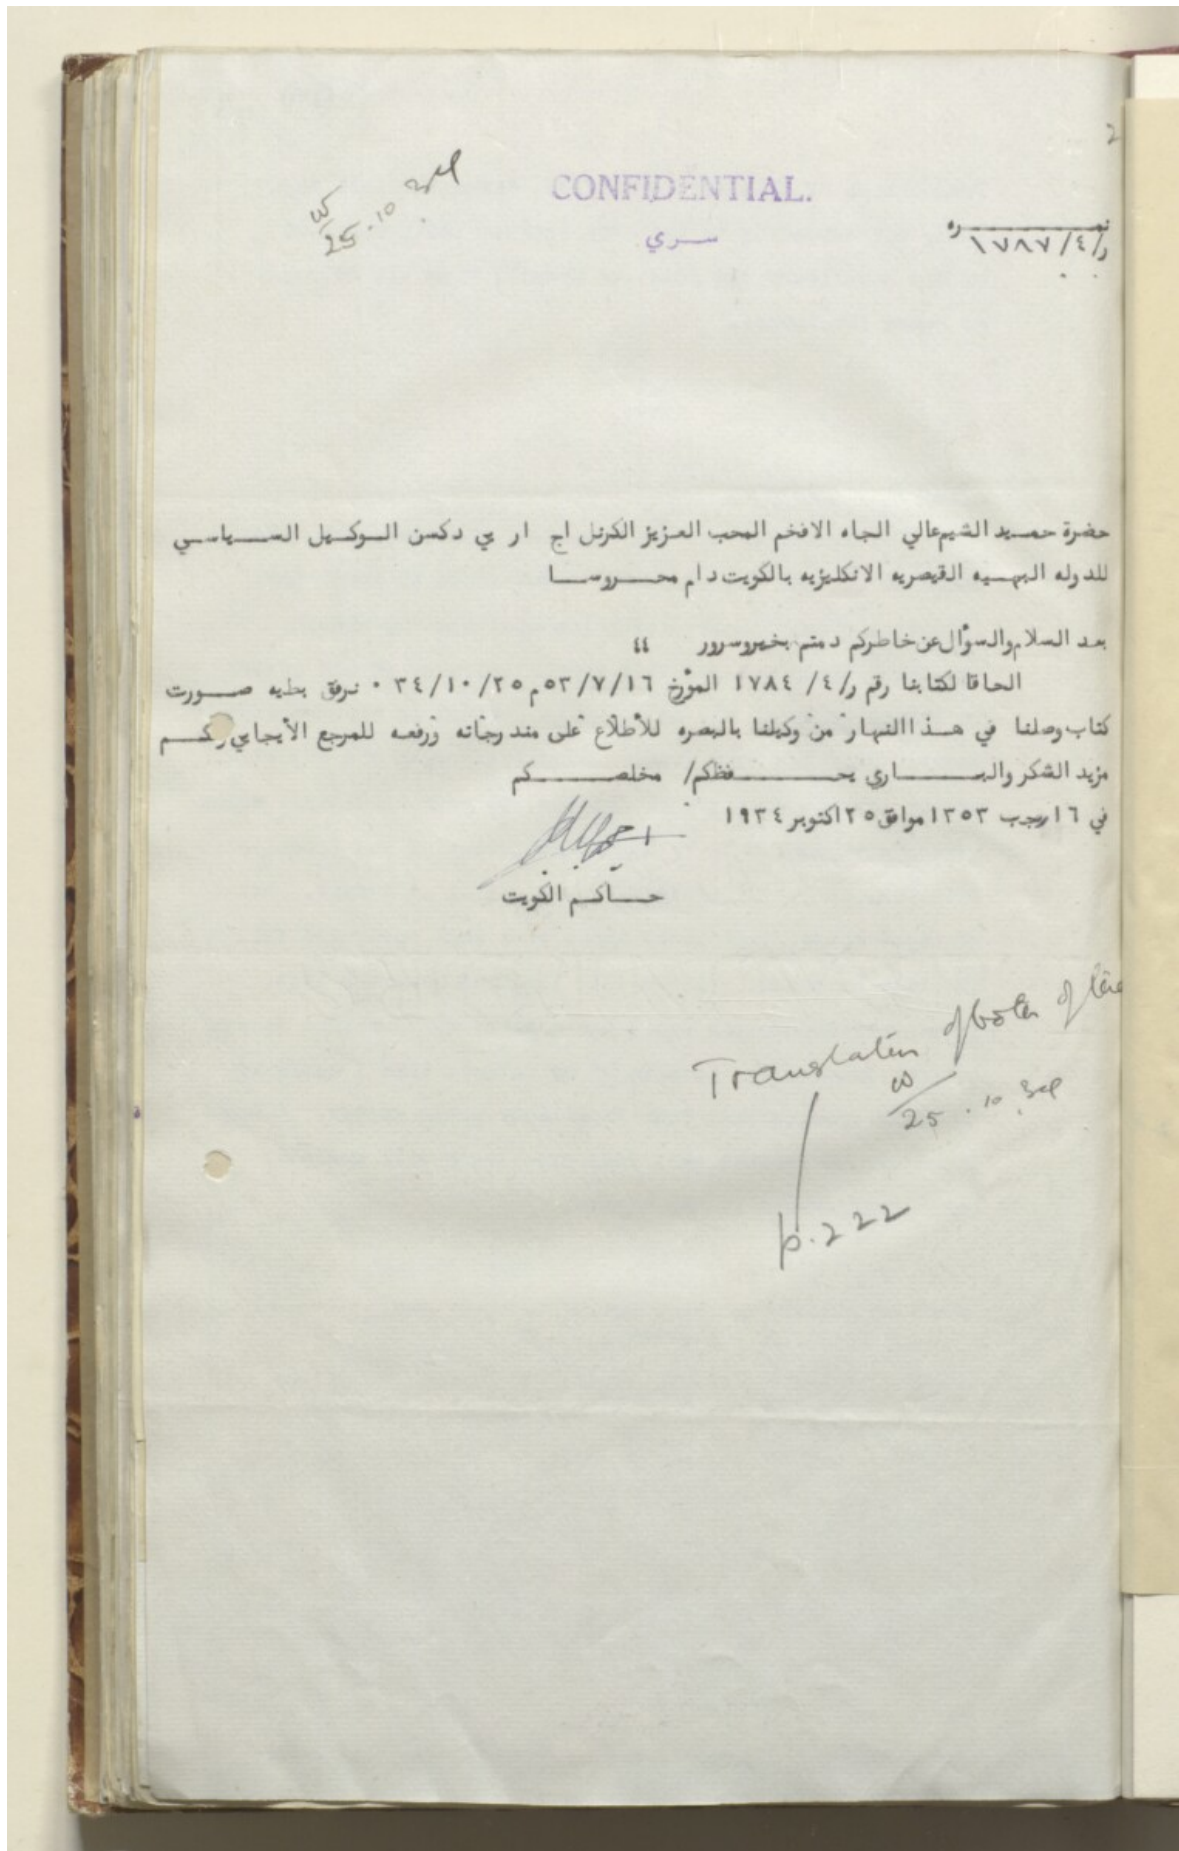 2
25.10.34
CONFIDENTIAL.
سري
نمره
ر/٤/١٧٨٧
حضرة حميد الشيم عالي الجاه الافخم المحب العزيز الكرنل اج ار بي دكسن الوكيل السياسي
للدوله البهيه القيصريه الانكليزيه بالكويت دام محروسا
بعد السلام والسؤال عن خاطركم دمتم بخير وسرور ٤٤
الحاقا لكتابنا رقم ر/٤/ ١٧٨٤ المؤرخ ٥٣/٧/١٦ م ٣٤/١٠/٢٥ ٠ نرفق بطيه صورت
كتاب وصلنا في هذا النهار من وكيلنا بالبصره للأطلاع على مندرجاته ورفعه للمرجع الأيجابي
مزيد الشكر والباري يحفظكم/ مخلصكم
في ١٦ رجب ١٣٥٣ موافق ٢٥ اكتوبر ١٩٣٤
حاكم الكويت
Translation of both of
25.10.34
p.222